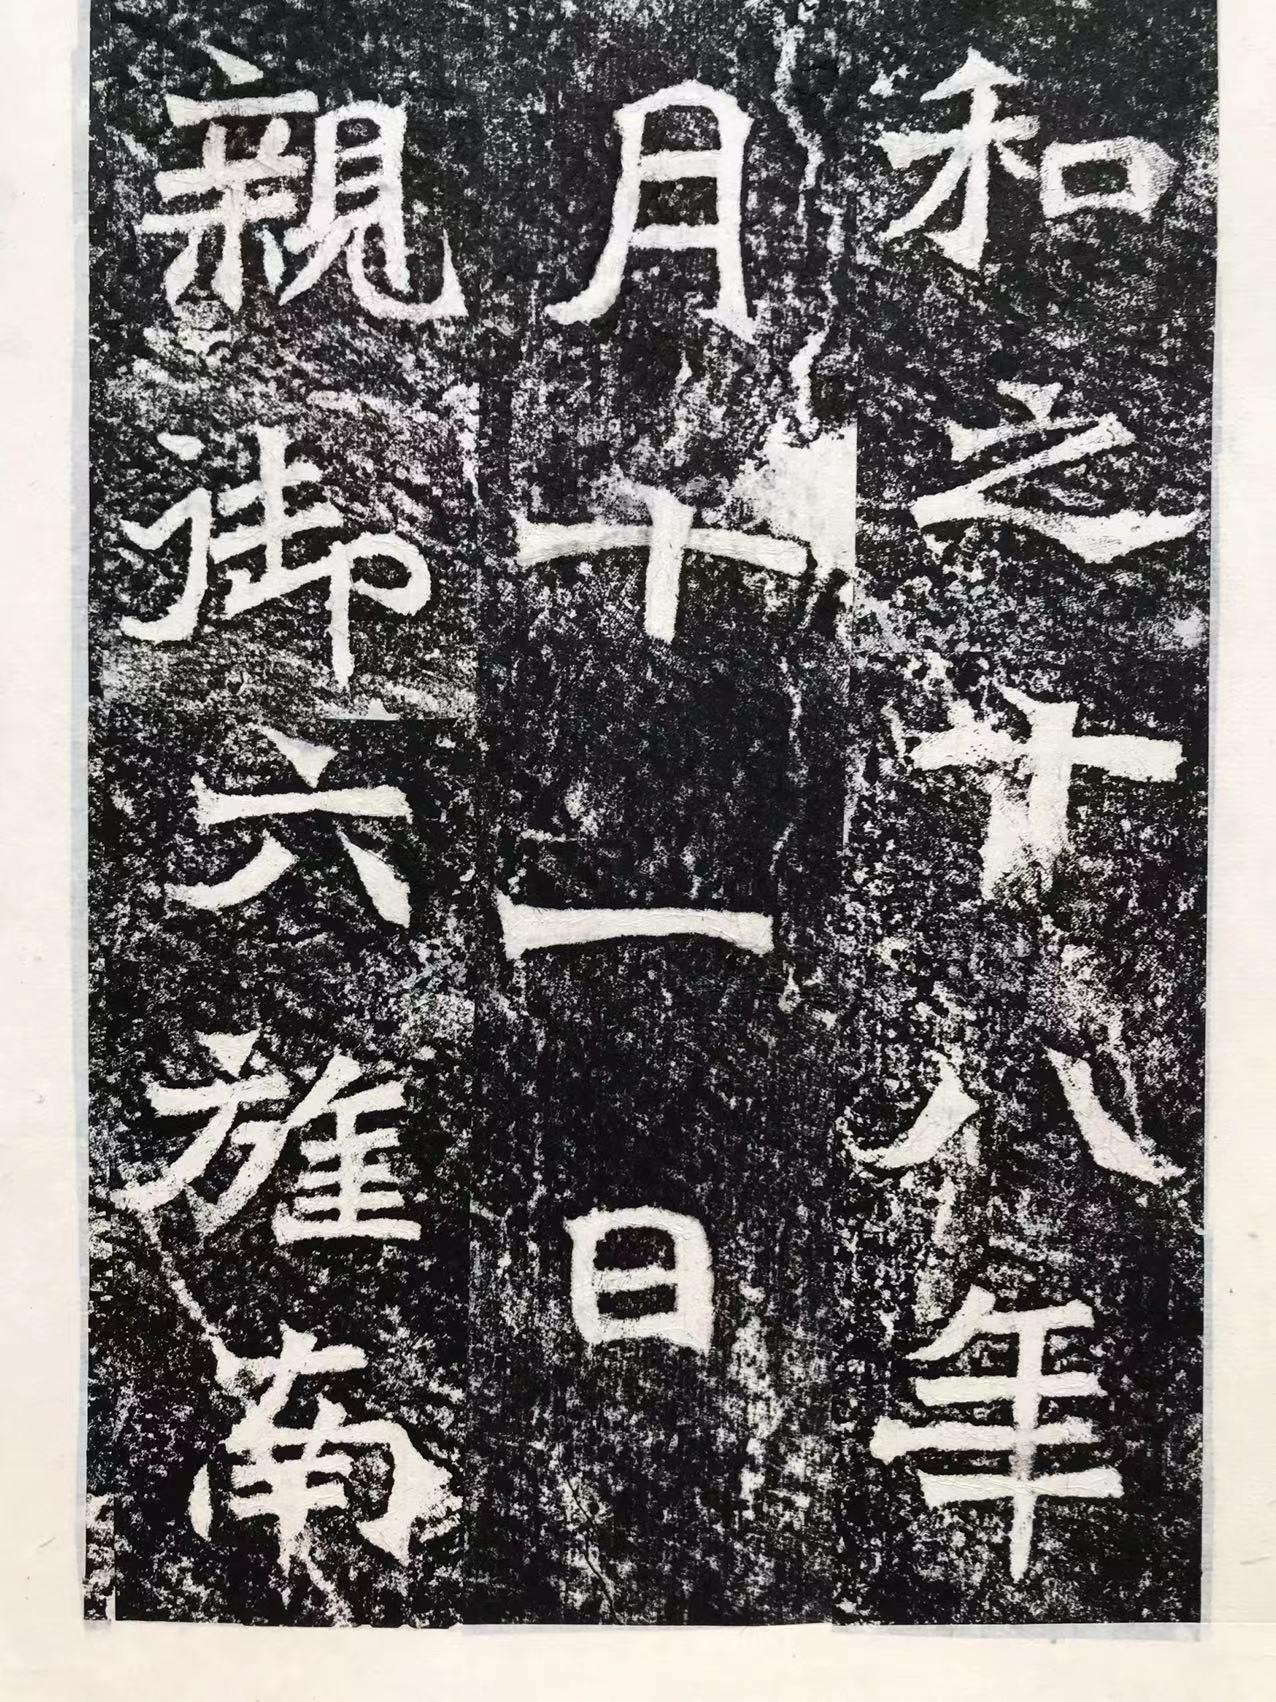 和之十八年
月十一日
親御六旌南